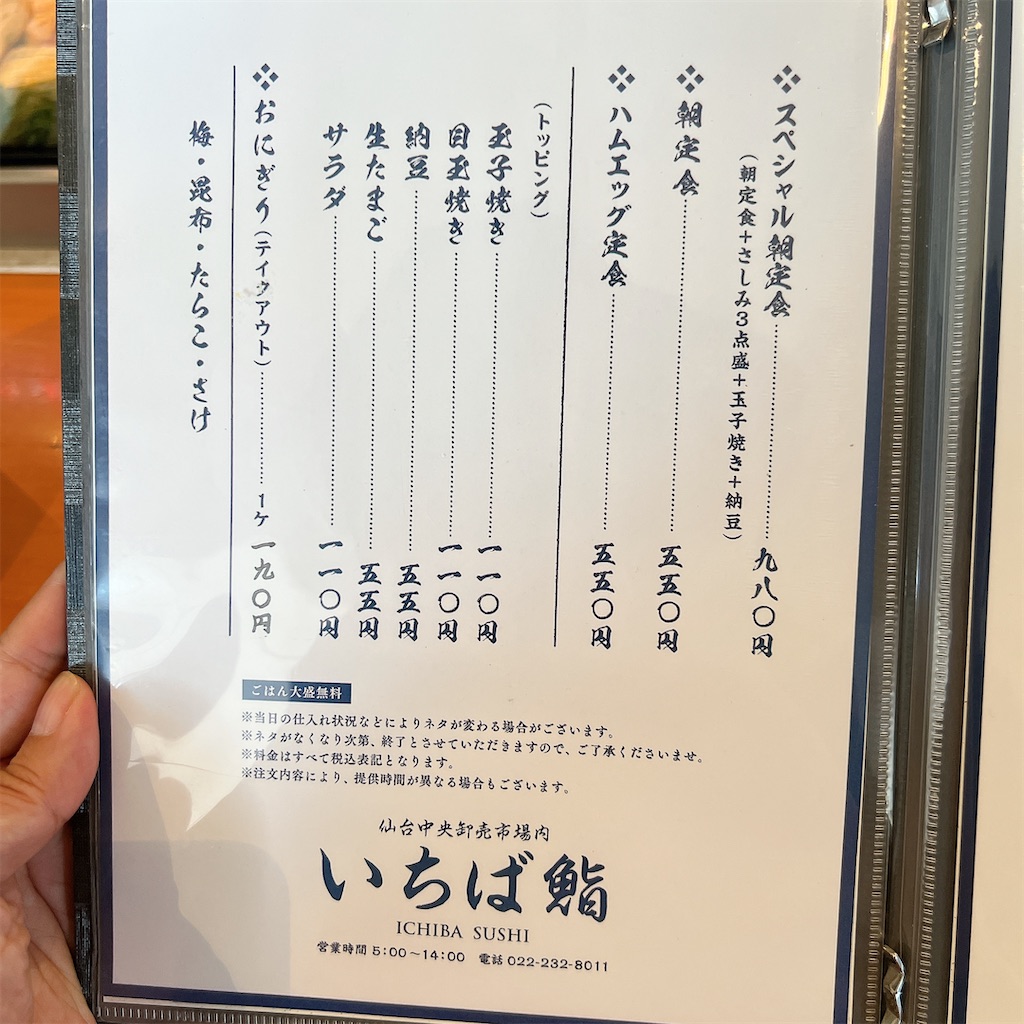 ❖スペシャル朝定食………九八〇円
（朝定食＋さしみ3点盛＋玉子焼き＋納豆）
❖朝定食………五五〇円
❖ハムエッグ定食………五五〇円
（トッピング）
玉子焼き………一一〇円
目玉焼き………一一〇円
納豆………五五円
生たまご………五五円
サラダ………一一〇円
❖おにぎり（テイクアウト）………1ケ 一九〇円
梅・昆布・たらこ・さけ
ごはん大盛無料
※当日の仕入れ状況などによりネタが変わる場合がございます。
※ネタがなくなり次第、終了とさせていただきますので、ご了承くださいませ。
※料金はすべて税込表記となります。
※注文内容により、提供時間が異なる場合もございます。
仙台中央卸売市場内
いちば鮨
ICHIBA SUSHI
営業時間 5:00〜14:00 電話 022-232-8011